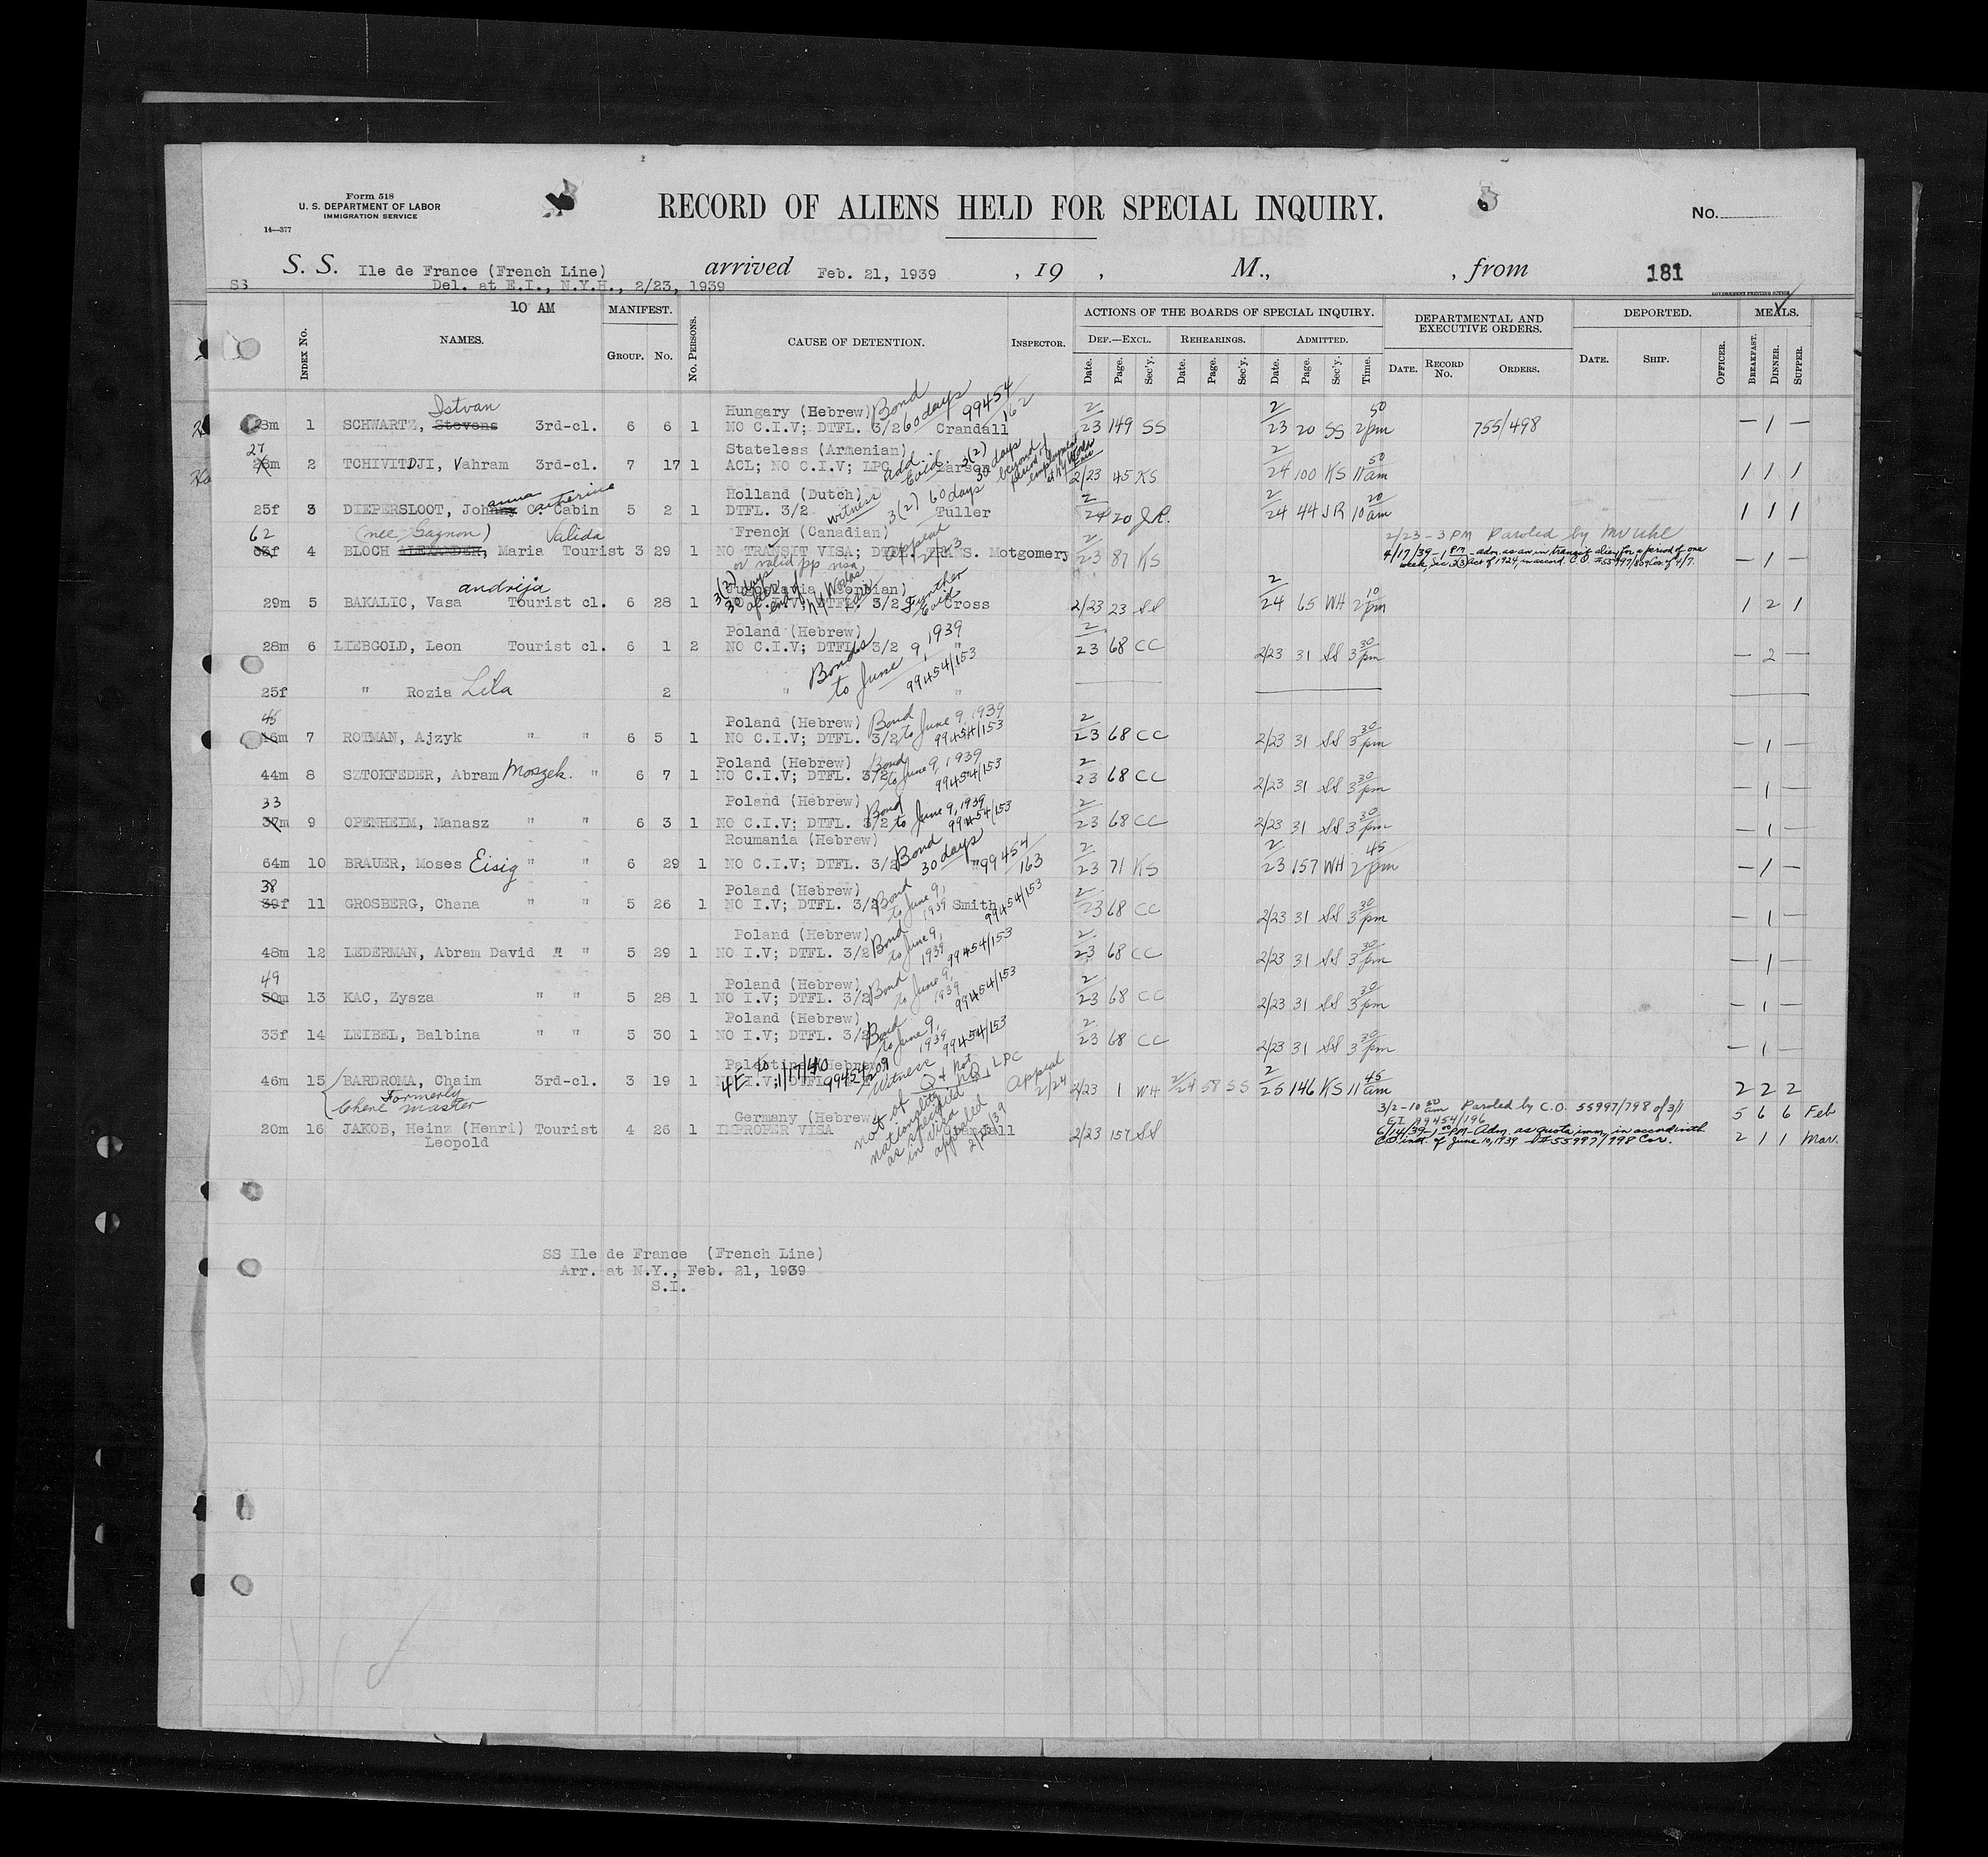 Form 518
U. S. DEPARTMENT OF LABOR
IMMIGRATION SERVICE
14—377
RECORD OF ALIENS HELD FOR SPECIAL INQUIRY.
No.
S. S. Ile de France (French Line) arrived Feb. 21, 1939 , 19 , M., , from 181
SS Del. at E.I., N.Y.H., 2/23, 1939
GOVERNMENT PRINTING OFFICE
10 AM
INDEX No. NAMES. MANIFEST. GROUP. No. No. PERSONS. CAUSE OF DETENTION. INSPECTOR. ACTIONS OF THE BOARDS OF SPECIAL INQUIRY. DEF.—EXCL. REHEARINGS. ADMITTED. DEPARTMENTAL AND EXECUTIVE ORDERS. DEPORTED. MEALS.
Date. Page. Sec'y. Date. Page. Sec'y. Date. Page. Sec'y. Time. DATE. RECORD No. ORDERS. DATE. SHIP. OFFICER. BREAKFAST. DINNER. SUPPER.
Istvan Hungary (Hebrew) Bond 60 days 99454/162
1 SCHWARTZ, Stevens 3rd-cl. 6 6 1 NO C.I.V; DTFL. 3/2 Crandall 2/23 149 SS 2/23 20 SS 2 50 pm 755/498 — 1 —
27 Stateless (Armenian) add. Evid. 3(2) 30 days beyond period of employment at N.Y. Worlds Fair
28m 2 TCHIVITDJI, Vahram 3rd-cl. 7 17 1 ACL; NO C.I.V; LPC Larson 2/23 45 KS 2/24 100 KS 11 50 am 1 1 1
anna Catherine Holland (Dutch) witness 3(2) 60 days
25f 3 DIEPERSLOOT, Johnny C. Cabin 5 2 1 DTFL. 3/2 Tuller 2/24 20 JR. 2/24 44 JR 10 20 am 1 1 1
62 (nee Gagnon) Valida French (Canadian) Appeal 2/23 2/23 - 3 PM Paroled by Mr Uhl
4 BLOCH ALEXANDER, Maria Tourist 3 29 1 NO TRANSIT VISA; DTFL. TRNS. Motgomery 2/23 87 KS 4/17/39 - 1 PM - adm. as an in transit alien for a period of one — 1 —
or valid pp visa week, Sec. 3(3) Act of 1924, in accord. C.O. #55997/869 Cor. of 4/7.
andrija 3(2) 30 days after end of NY Worlds Fair Further Evid
29m 5 BAKALIC, Vasa Tourist cl. 6 28 1 Cross 2/23 23 SS 2/24 65 WH 2 10 pm 1 2 1
Poland (Hebrew) Bonds to June 9, 1939 99454/153
28m 6 LIEBGOLD, Leon Tourist cl. 6 1 2 NO C.I.V; DTFL. 3/2 " 2/23 68 CC 2/23 31 SS 3 30 pm — 2 —
25f " Rozia Lila 2 " "
45 Poland (Hebrew) Bond to June 9, 1939 99454/153
46m 7 ROTMAN, Ajzyk " " 6 5 1 NO C.I.V; DTFL. 3/2 2/23 68 CC 2/23 31 SS 3 30 pm — 1 —
Poland (Hebrew) Bond to June 9, 1939 99454/153
44m 8 SZTOKFEDER, Abram Moszek. " 6 7 1 NO C.I.V; DTFL. 3/2 2/23 68 CC 2/23 31 SS 3 30 pm — 1 —
33 Poland (Hebrew) Bond to June 9, 1939 99454/153
37m 9 OPENHEIM, Manasz " " 6 3 1 NO C.I.V; DTFL. 3/2 2/23 68 CC 2/23 31 SS 3 30 pm — 1 —
Roumania (Hebrew) Bond 30 days 99454/163
64m 10 BRAUER, Moses Eisig " " 6 29 1 NO C.I.V; DTFL. 3/2 " 2/23 71 KS 2/23 157 WH 2 45 pm — 1 —
38 Poland (Hebrew) Bond to June 9, 1939 99454/153
39f 11 GROSBERG, Chana " " 5 26 1 NO I.V; DTFL. 3/2 Smith 2/23 68 CC 2/23 31 SS 3 30 pm — 1 —
Poland (Hebrew) Bond to June 9, 1939 99454/153
48m 12 LEDERMAN, Abram David " " 5 29 1 NO I.V; DTFL. 3/2 2/23 68 CC 2/23 31 SS 3 30 pm — 1 —
49 Poland (Hebrew) Bond to June 9, 1939 99454/153
50m 13 KAC, Zysza " " 5 28 1 NO I.V; DTFL. 3/2 2/23 68 CC 2/23 31 SS 3 30 pm — 1 —
Poland (Hebrew) Bond to June 9, 1939 99454/153
33f 14 LEIBEL, Balbina " " 5 30 1 NO I.V; DTFL. 3/2 2/23 68 CC 2/23 31 SS 3 30 pm — 1 —
Palestine (Hebrew) 4E to 1/17/40 Witness Appeal 2/24
46m 15 BARDROMA, Chaim 3rd-cl. 3 19 1 NO I.V; DTFL. LPC 2/23 1 WH 2/24 58 SS 2/25 146 KS 11 45 am 2 2 2
Formerly
Chene Master
Germany (Hebrew) not of nationality as specified in visa appealed 2/23/39 3/2 - 10 50 am Paroled by C.O. 55997/798 of 3/1 5 6 6 Feb
EI 99454/196
20m 16 JAKOB, Heinz (Henri) Tourist 4 26 1 IMPROPER VISA 2/23 157 SS 6/14/39 - 1 00 PM - Adm. as quota imm. in accord with
Leopold C.O. inst. of June 10, 1939 - #55997/798 Cor. 2 1 1 Mar.
SS Ile de France (French Line)
Arr. at N.Y., Feb. 21, 1939
S.I.